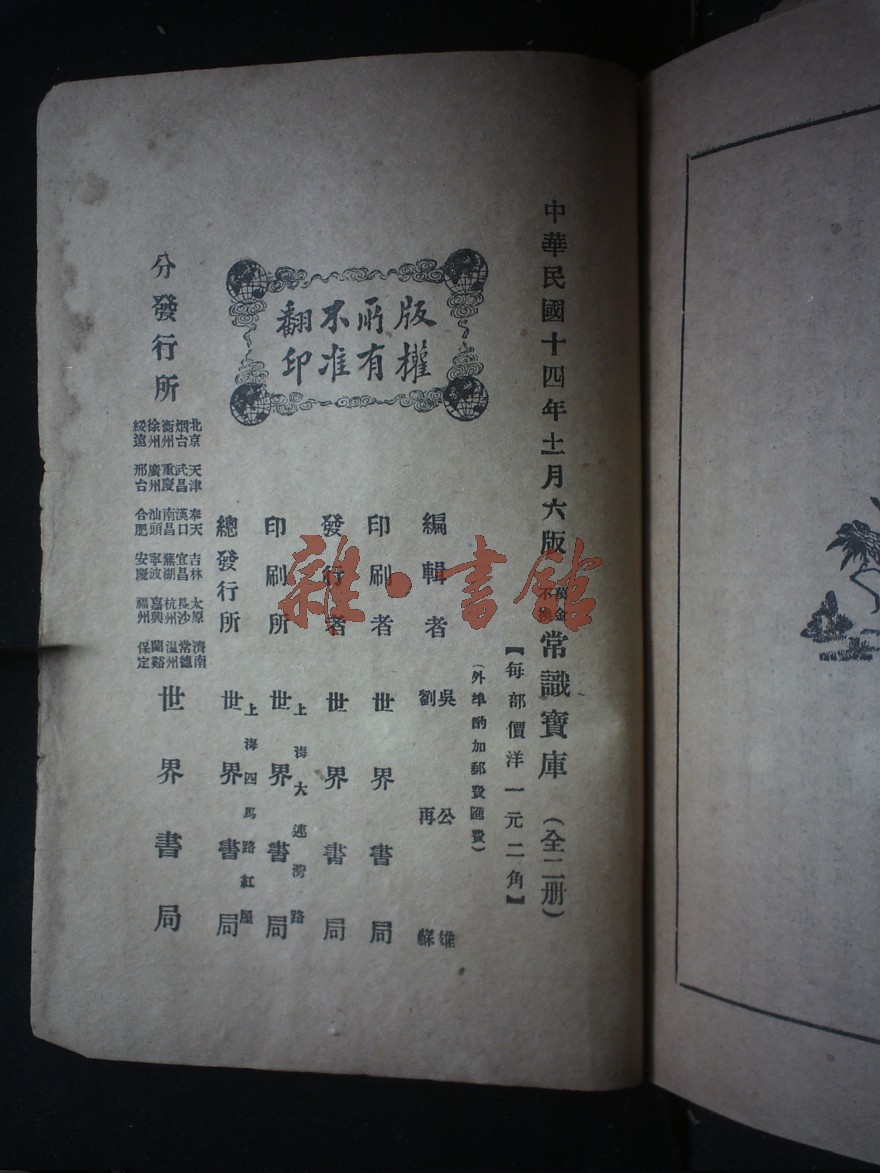 中華民國十四年十二月六版
萬金不換 常識寶庫 (全二册)
【每部價洋一元二角】
(外埠酌加郵費匯費)
編輯者 吳公雄 劉再蘇
印刷者 世界書局
發行者 世界書局
印刷所 上海大連灣路 世界書局
總發行所 上海四馬路紅屋 世界書局
版權所有
不准翻印
分發行所
北京 天津 奉天 吉林 太原 濟南
烟台 武昌 漢口 宜昌 長沙 常德
衡州 重慶 南昌 蕪湖 杭州 溫州
徐州 廣州 汕頭 寧波 嘉興 蘭谿
綏遠 邢台 合肥 安慶 福州 保定
世界書局
雜·書館